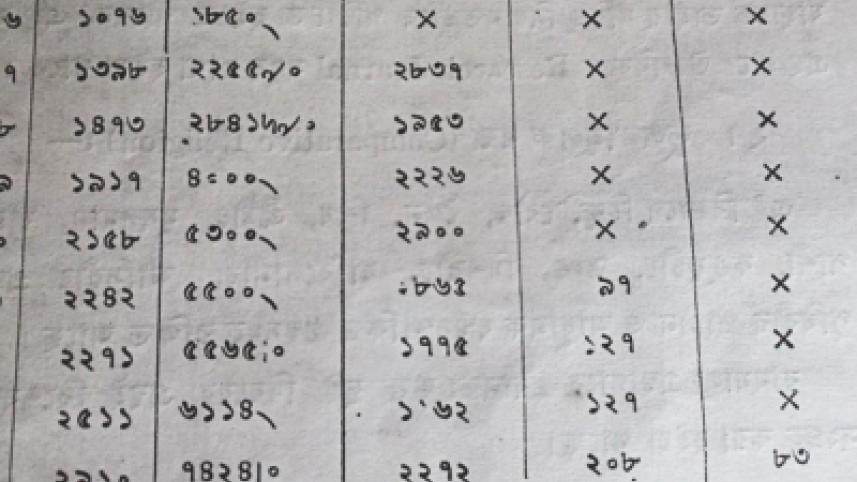 ৬ ১০৭৬ ১৮৫০৲ × × ×
৭ ১৩৯৮ ২২৫৫৵০ ২৮৩৭ × ×
৮ ১৪৭৩ ১৯৫৩ × ×
৯ ১৯১৭ ৪০০০৲ ২২২৬ × ×
২১৫৮ ৫৩০০৲ ২৯০০ × ×
২২৪২ ৫৫০০৲ ৯৭ ×
২২৭১ ৫৫৬৫।০ ১৭৭৫ ১২৭ ×
২৫১১ ৬১১৪৲ ১২৭ ×
৭৪২৪।০ ২২৭২ ২০৮ ৮৩